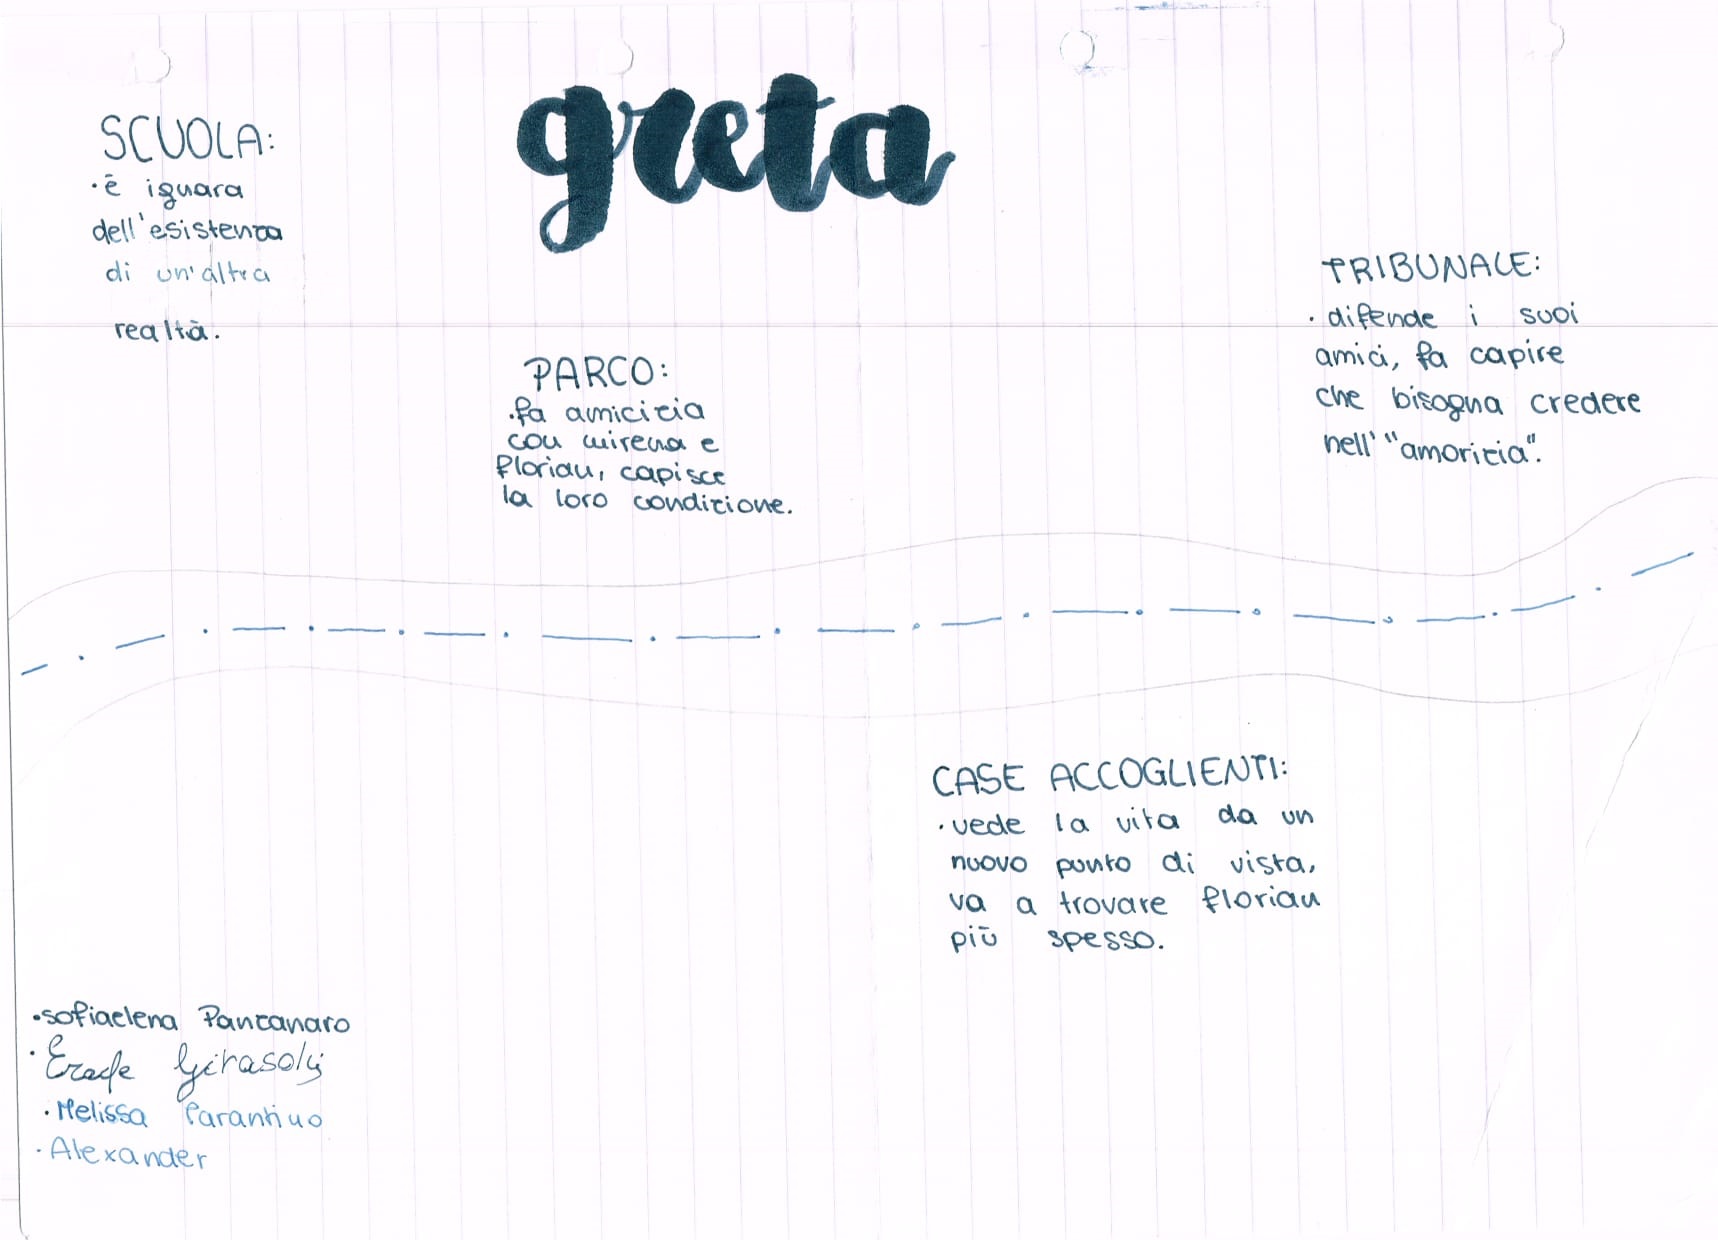 greta
SCUOLA:
· è ignara
dell'esistenza
di un'altra
realtà.
PARCO:
· fa amicizia
con mirena e
florian, capisce
la loro condizione.
TRIBUNALE:
· difende i suoi
amici, fa capire
che bisogna credere
nell'"amorizia".
CASE ACCOGLIENTI:
· vede la vita da un
nuovo punto di vista,
va a trovare florian
più spesso.
· sofiaelena Panzanaro
· Girasoli
· Melissa
· Alexander